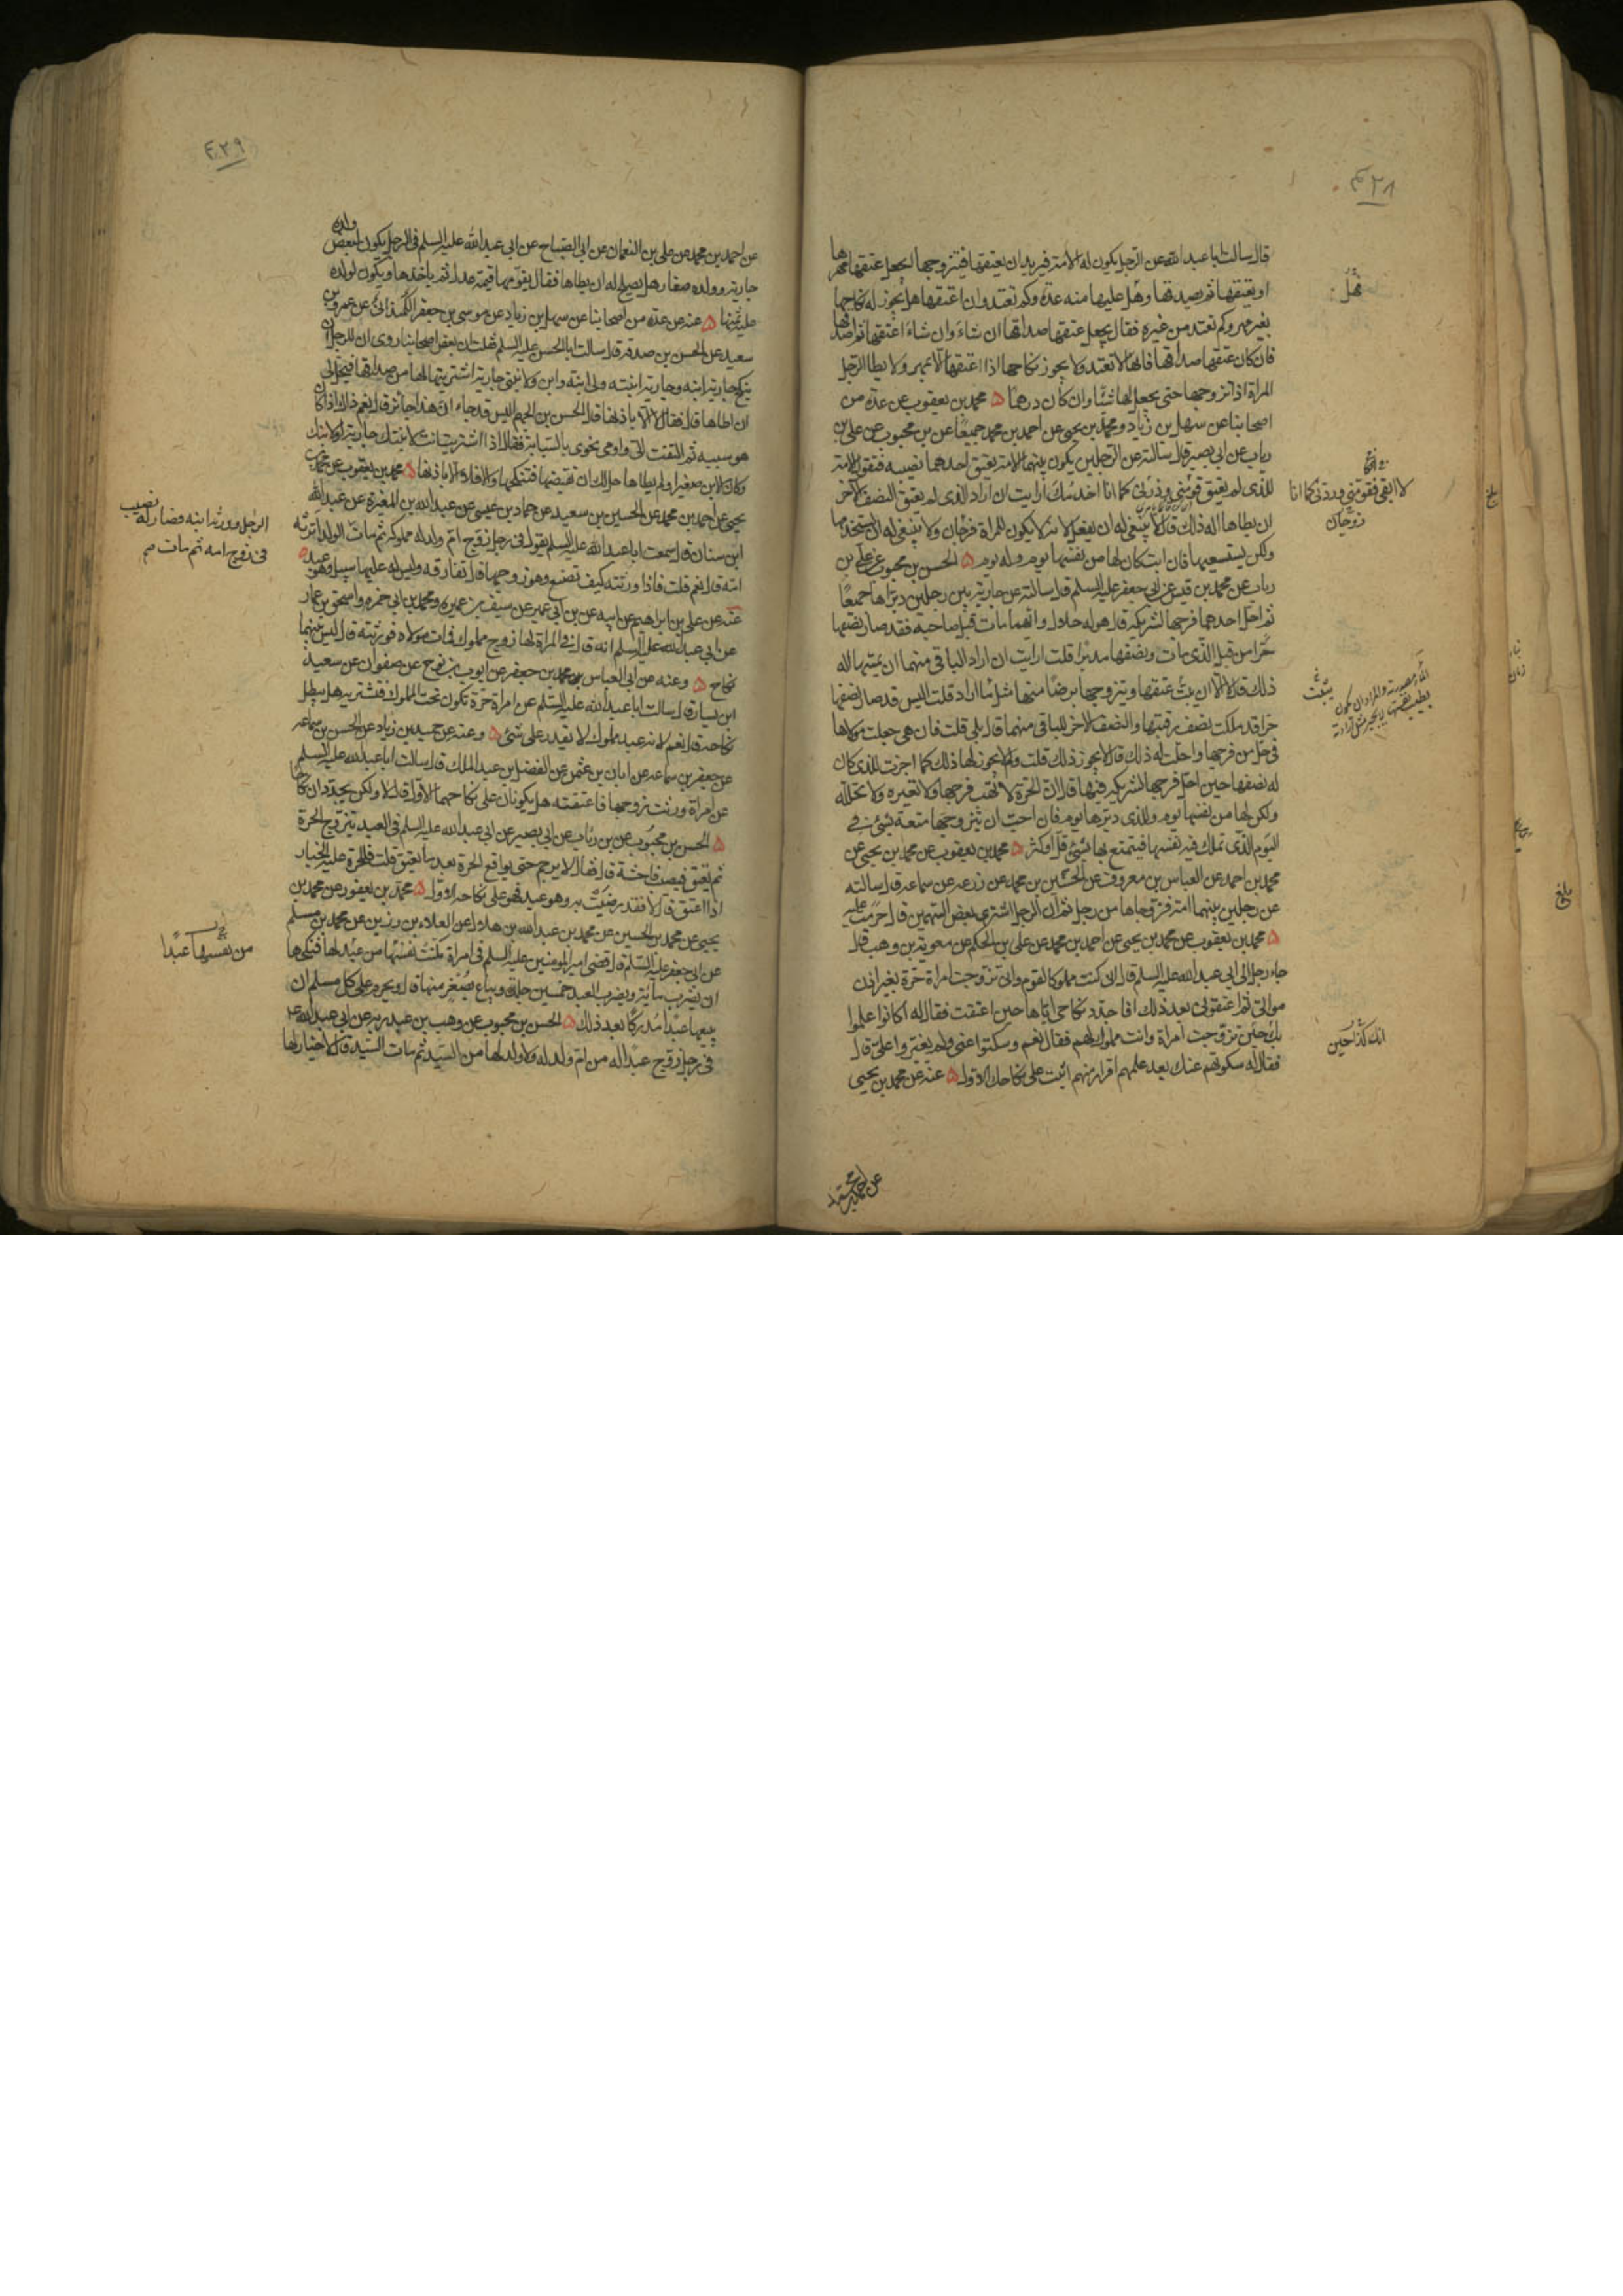 ٤٢٨
قال سالت ابا عبد الله عن الرجل يكون له الامة فيريد ان يعتقها فيتزوجها ايجعل عتقها مهرها
او يعتقها ثم يصدقها وهل عليها منه عدة وكم تعتد وان اعتقها هل يجوز له نكاحها
بغير مهر وكم تعتد من غيره فقال يجعل عتقها صداقها ان شاء وان شاء اعتقها ثم اصدقها
فان كان عتقها صداقها فانها لا تعتد ولا يجوز نكاحها اذا اعتقها الا بمهر ولا يطا الرجل
المراة اذا تزوجها حتى يجعل لها شيئا وان كان درهما ۵ محمد بن يعقوب عن عدة من
اصحابنا عن سهل بن زياد ومحمد بن يحيى عن احمد بن محمد جميعا عن بن محبوب عن على بن
رياب عن ابى بصير قال سالته عن الرجلين يكون بينهما الامة يعتق احدهما نصيبه فتقول الامة
للذى لم يعتق قومنى وذرنى كما انا اخدمك ارايت ان اراد الذى لم يعتق النصف الاخر
ان يطاها اله ذلك قال لا ينبغى له ان يفعل لانه لا يكون للمراة فرجان ولا ينبغى له ان يستخدمها
ولكن يستسعيها فان ابت كان لها من نفسها يوم وله يوم ۵ الحسن بن محبوب عن على بن
رياب عن محمد بن قيس عن ابى جعفر عليه السلم قال سالته عن جارية بين رجلين دبراها جميعا
ثم احل احدهما فرجها لشريكه قال هو له حلال وايهما مات قبل صاحبه فقد صار نصفها
حرا من قبل الذى مات ونصفها مدبرا قلت ارايت ان اراد الباقى منهما ان يمسها اله
ذلك قال لا الا ان يبت عتقها ويتزوجها برضا منها مثل ما اراد قلت اليس قد صار نصفها
حرا قد ملكت نصف رقبتها والنصف الاخر للباقى منهما قال بلى قلت فان هى جعلت مولاها
فى حل من فرجها واحلت له ذلك قال لا يجوز ذلك قلت ولم لا يجوز لها ذلك كما اجزت للذى كان
له نصفها حين احل فرجها لشريكه فيها قال ان الحرة لا تهب فرجها ولا تعيره ولا تحلله
ولكن لها من نفسها يوم وللذى دبرها يوم فان احب ان يتزوجها متعة بشئ فى
اليوم الذى تملك فيه نفسها فيتمتع بها بشئ قل او كثر ۵ محمد بن يعقوب عن محمد بن يحيى عن
محمد بن احمد عن العباس بن معروف عن الحسين بن محمد عن زرعه عن سماعه قال سالته
عن رجلين بينهما امة فزوجاها من رجل ثم ان الرجل اشترى بعض السهمين قال حرمت عليه
۵ محمد بن يعقوب عن محمد بن يحيى عن احمد بن محمد عن على بن الحكم عن معوية بن وهب قال
جاء رجل الى ابى عبد الله عليه السلم قال انى كنت مملوكا لقوم وانى تزوجت امراة حرة بغير اذن
موالى ثم اعتقونى بعد ذلك افاجدد نكاحى اياها حين اعتقت فقال له اكانوا علموا
بك حين تزوجت امراة وانت مملوك لهم فقال نعم وسكتوا عنى ولم يغيروا على قال
فقال له سكوتهم عنك بعد علمهم اقرار منهم اثبت على نكاحك الاول ۵ عنه عن محمد بن يحيى
عن احمد بن محمد
لا ابقى فقومنى وردنى كما انا
زوجان
انك كذا حين
بلغ
٤٢٩
عن احمد بن محمد عن على بن النعمان عن ابى الصباح عن ابى عبد الله عليه السلم فى الرجل يكون لبعض ولده
جارية وولده صغار هل يصلح له ان يطاها فقال يقومها قيمة عدل ثم ياخذها ويكون لولده
عليه ثمنها ۵ عنه عن عدة من اصحابنا عن سهل بن زياد عن موسى بن جعفر عن عمرو بن
سعيد عن الحسن بن صدقة قال سالت ابا الحسن عليه السلم فقلت ان بعض اصحابنا روى ان للرجل ان
ينكح جارية ابنه وجارية ابنته ولى ابنة وابن ولابنتى جارية اشتريتها لها من صداقها فيحل لى
ان اطاها قال فقال لا الا باذنها قال الحسن بن الجهم اليس قد جاء ان هذا جائز قال نعم ذاك اذا كان
هو سببه ثم التفت الى واومى نحوى بالسبابة فقال اذا اشتريت انت لابنتك جارية او لابنك
وكان الابن صغيرا ولم يطاها حل لك ان تقتضها فتنكحها والا فلا الا باذنها ۵ محمد بن يعقوب عن محمد بن
يحيى عن احمد بن محمد عن الحسين بن سعيد عن حماد بن عيسى عن عبد الله بن المغيرة عن عبد الله
ابن سنان قال سمعت ابا عبد الله عليه السلم يقول فى رجل زوج ام ولد له مملوكه ثم مات الولد ايرثه
امه قال نعم قلت فاذا ورثته كيف تصنع وهو زوجها قال تفارقه وليس له عليها سبيل وهو عبد ۵
عنه عن على بن ابراهيم عن ابيه عن بن ابى عمير عن سيف بن عميره ومحمد بن ابى حمزه واسحق بن عمار
عن ابى عبد الله عليه السلم انه قال فى المراة لها زوج مملوك فمات مولاه فورثته قال ليس بينهما
نكاح ۵ وعنه عن ابى العباس محمد بن جعفر عن ايوب بن نوح عن صفوان عن سعيد
ابن يسار قال سالت ابا عبد الله عليه السلم عن امراة حرة تكون تحت المملوك فتشتريه هل يبطل
نكاحه قال نعم لانه عبد مملوك لا يقدر على شئ ۵ وعنه عن حميد بن زياد عن الحسن بن سماعه
عن جعفر بن سماعه عن ابان بن عثمن عن الفضل بن عبد الملك قال سالت ابا عبد الله عليه السلم
عن امراة ورثت زوجها فاعتقته هل يكونان على نكاحهما الاول قال لا ولكن يجددان نكاحا
۵ الحسن بن محبوب عن بن رئاب عن ابى بصير عن ابى عبد الله عليه السلم فى العبد يتزوج الحرة
ثم يعتق فيصيب فاحشة قال فقال لا يرجم حتى يواقع الحرة بعد ما يعتق قلت فللحرة عليه الخيار
اذا اعتق قال لا فقد رضيت به وهو عبد فهو على نكاحه الاول ۵ محمد بن يعقوب عن محمد بن
يحيى عن محمد بن الحسين عن محمد بن عبد الله بن هلال عن العلاء بن رزين عن محمد بن مسلم
عن ابى جعفر عليه السلم قال قضى امير المومنين عليه السلم فى امراة مكنت نفسها من عبد لها فنكحها
ان يضرب ماية ويضرب العبد خمسين جلدة ويباع بصغر منها قال ويحرم على كل مسلم ان
يبيعها عبدا مدركا بعد ذلك ۵ الحسن بن محبوب عن وهب بن عبد ربه عن ابى عبد الله
فى رجل زوج عبدا له من ام ولد له ولا ولد لها من السيد ثم مات السيد قال لا خيار لها
من نفسها عبدًا